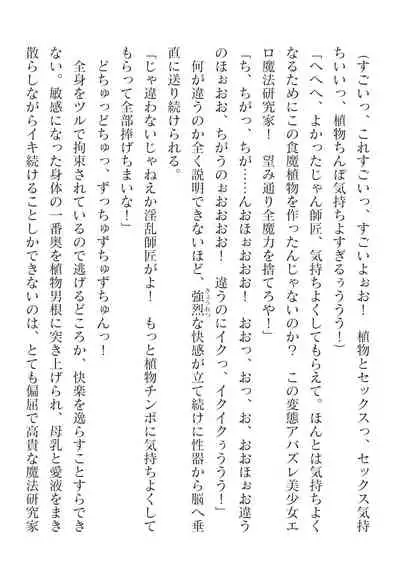 （すごいっ、これすごいっ、すごいよぉお！　植物とセックスっ、セックス気持
ちいいっ、植物ちんぽ気持ちよすぎるぅううう！）
「へへへ、よかったじゃん師匠、気持ちよくしてもらえて。ほんとは気持ちよく
なるためにこの食魔植物を作ったんじゃないのか？　この変態アバズレ美少女エ
ロ魔法研究家！　望み通り全魔力を捨てろや！」
「ち、ちがっ、ちが……んおほぉおおお！　おおっ、おっ、お、おおほぉお違う
のほぉおお、ちがうのぉおおおお！　違うのにイクっ、イクイクぅううう！」
何が違うのか全く説明できないほど、強烈な快感が立て続けに性器から脳へ垂
直に送り続けられる。
「じゃ違わないじゃねえか淫乱師匠がよ！　もっと植物チンポに気持ちよくして
もらって全部捧げちまいな！」
どちゅっどちゅっ、ずっちゅずちゅずちゅんっ！
全身をツルで拘束されているので逃げるどころか、快楽を逸らすことすらでき
ない。敏感になった身体の一番奥を植物男根に突き上げられ、母乳と愛液をまき
散らしながらイキ続けることしかできないのは、とても偏屈で高貴な魔法研究家